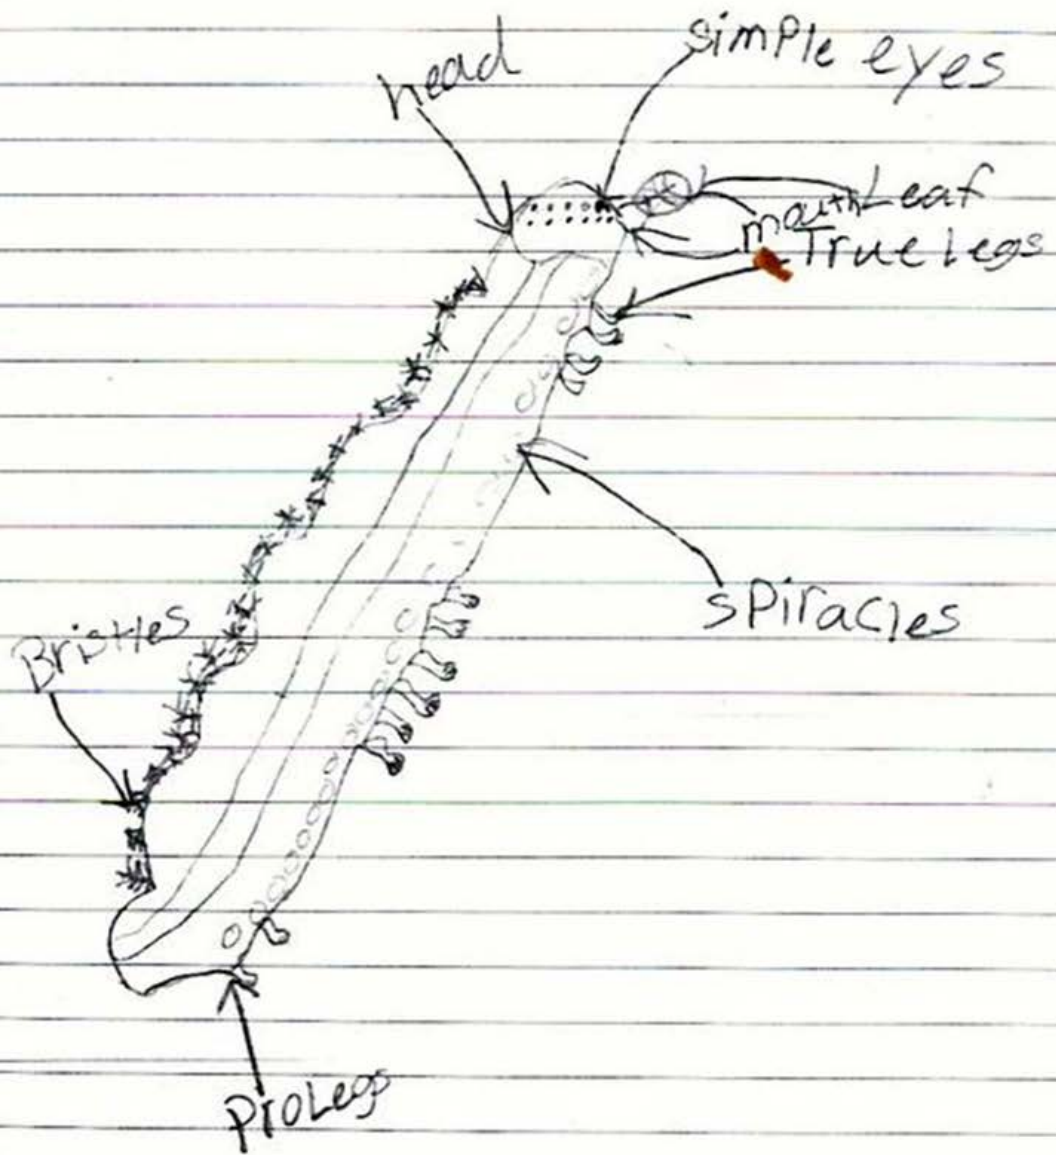 head
simple eyes
Leaf
mouth
True legs
spiracles
Bristles
ProLegs